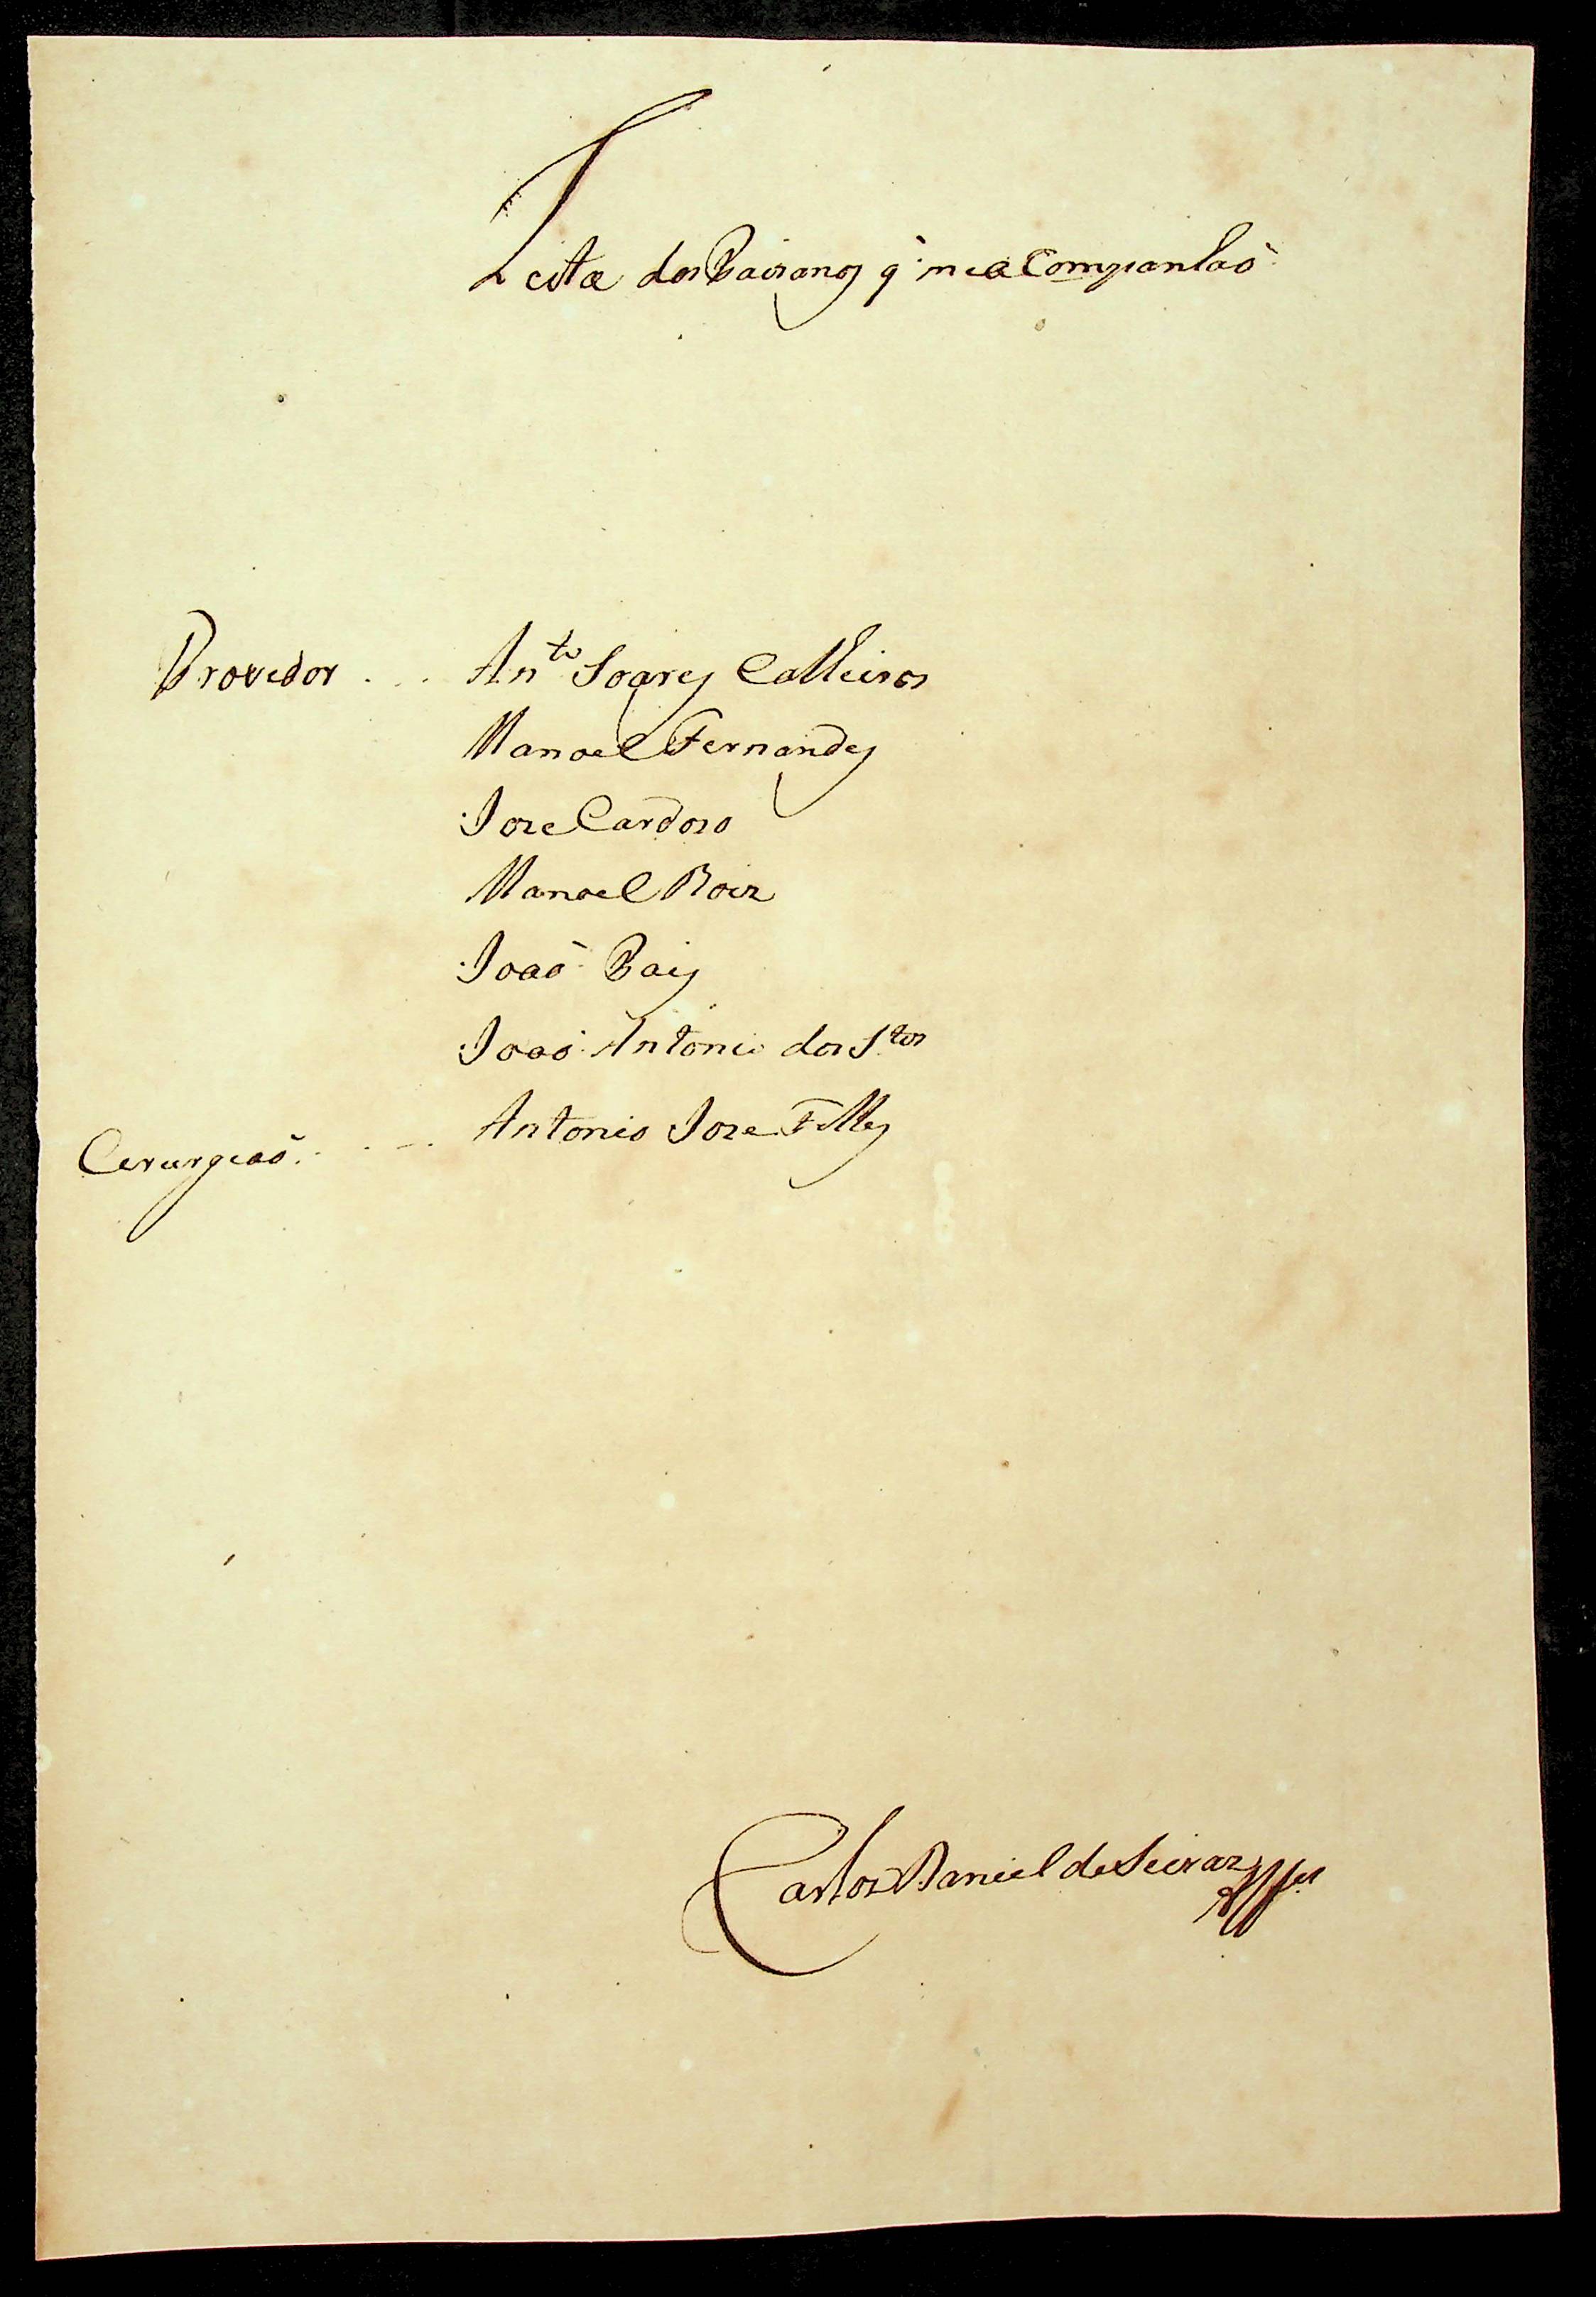 Lista dos Paizanos q̃ me aCompanhaõ
Provedor . . . Ant.º Soares Calheiros
Manoel Fernandes
Joze Cardozo
Manoel Roiz
Joaõ Pais
Joaõ Antonio dos S.tos
Cirurgiaõ. . . . Antonio Joze Telles
Carlos Daniel de Seixas